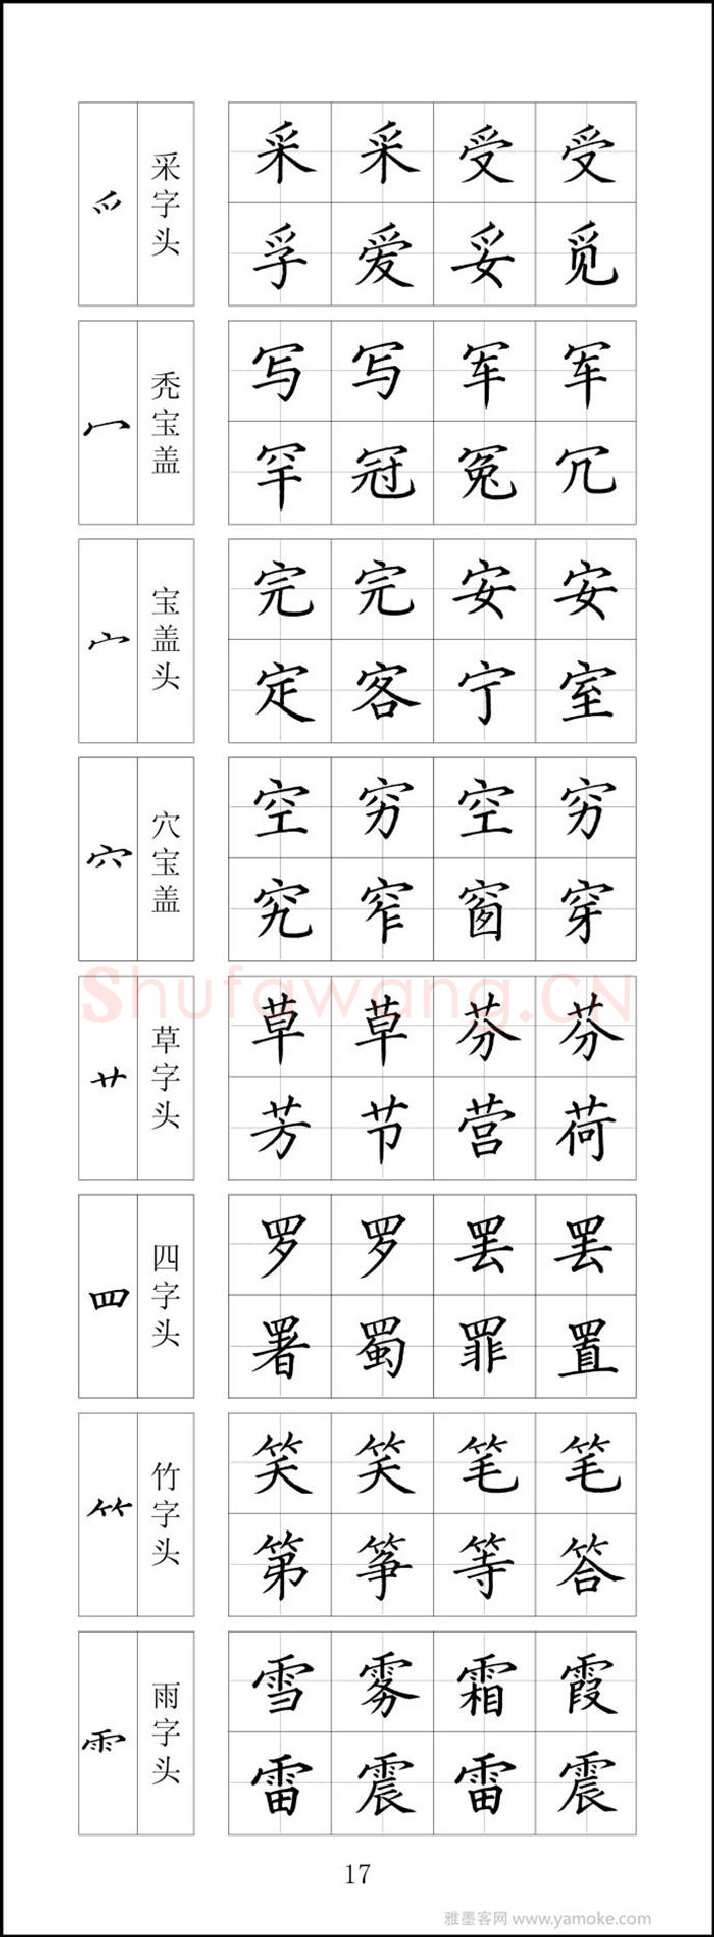 爫
采字头
采采受受
孚爱妥觅
冖
秃宝盖
写写军军
罕冠冤冗
宀
宝盖头
完完安安
定客宁室
穴
穴宝盖
空穷空穷
究窄窗穿
Shufawang.CN
艹
草字头
草草芬芬
芳节营荷
罒
四字头
罗罗罢罢
署蜀罪置
⺮
竹字头
笑笑笔笔
第筝等答
⻗
雨字头
雪雾霜霞
雷震雷震
17
雅墨客网 www.yamoke.com